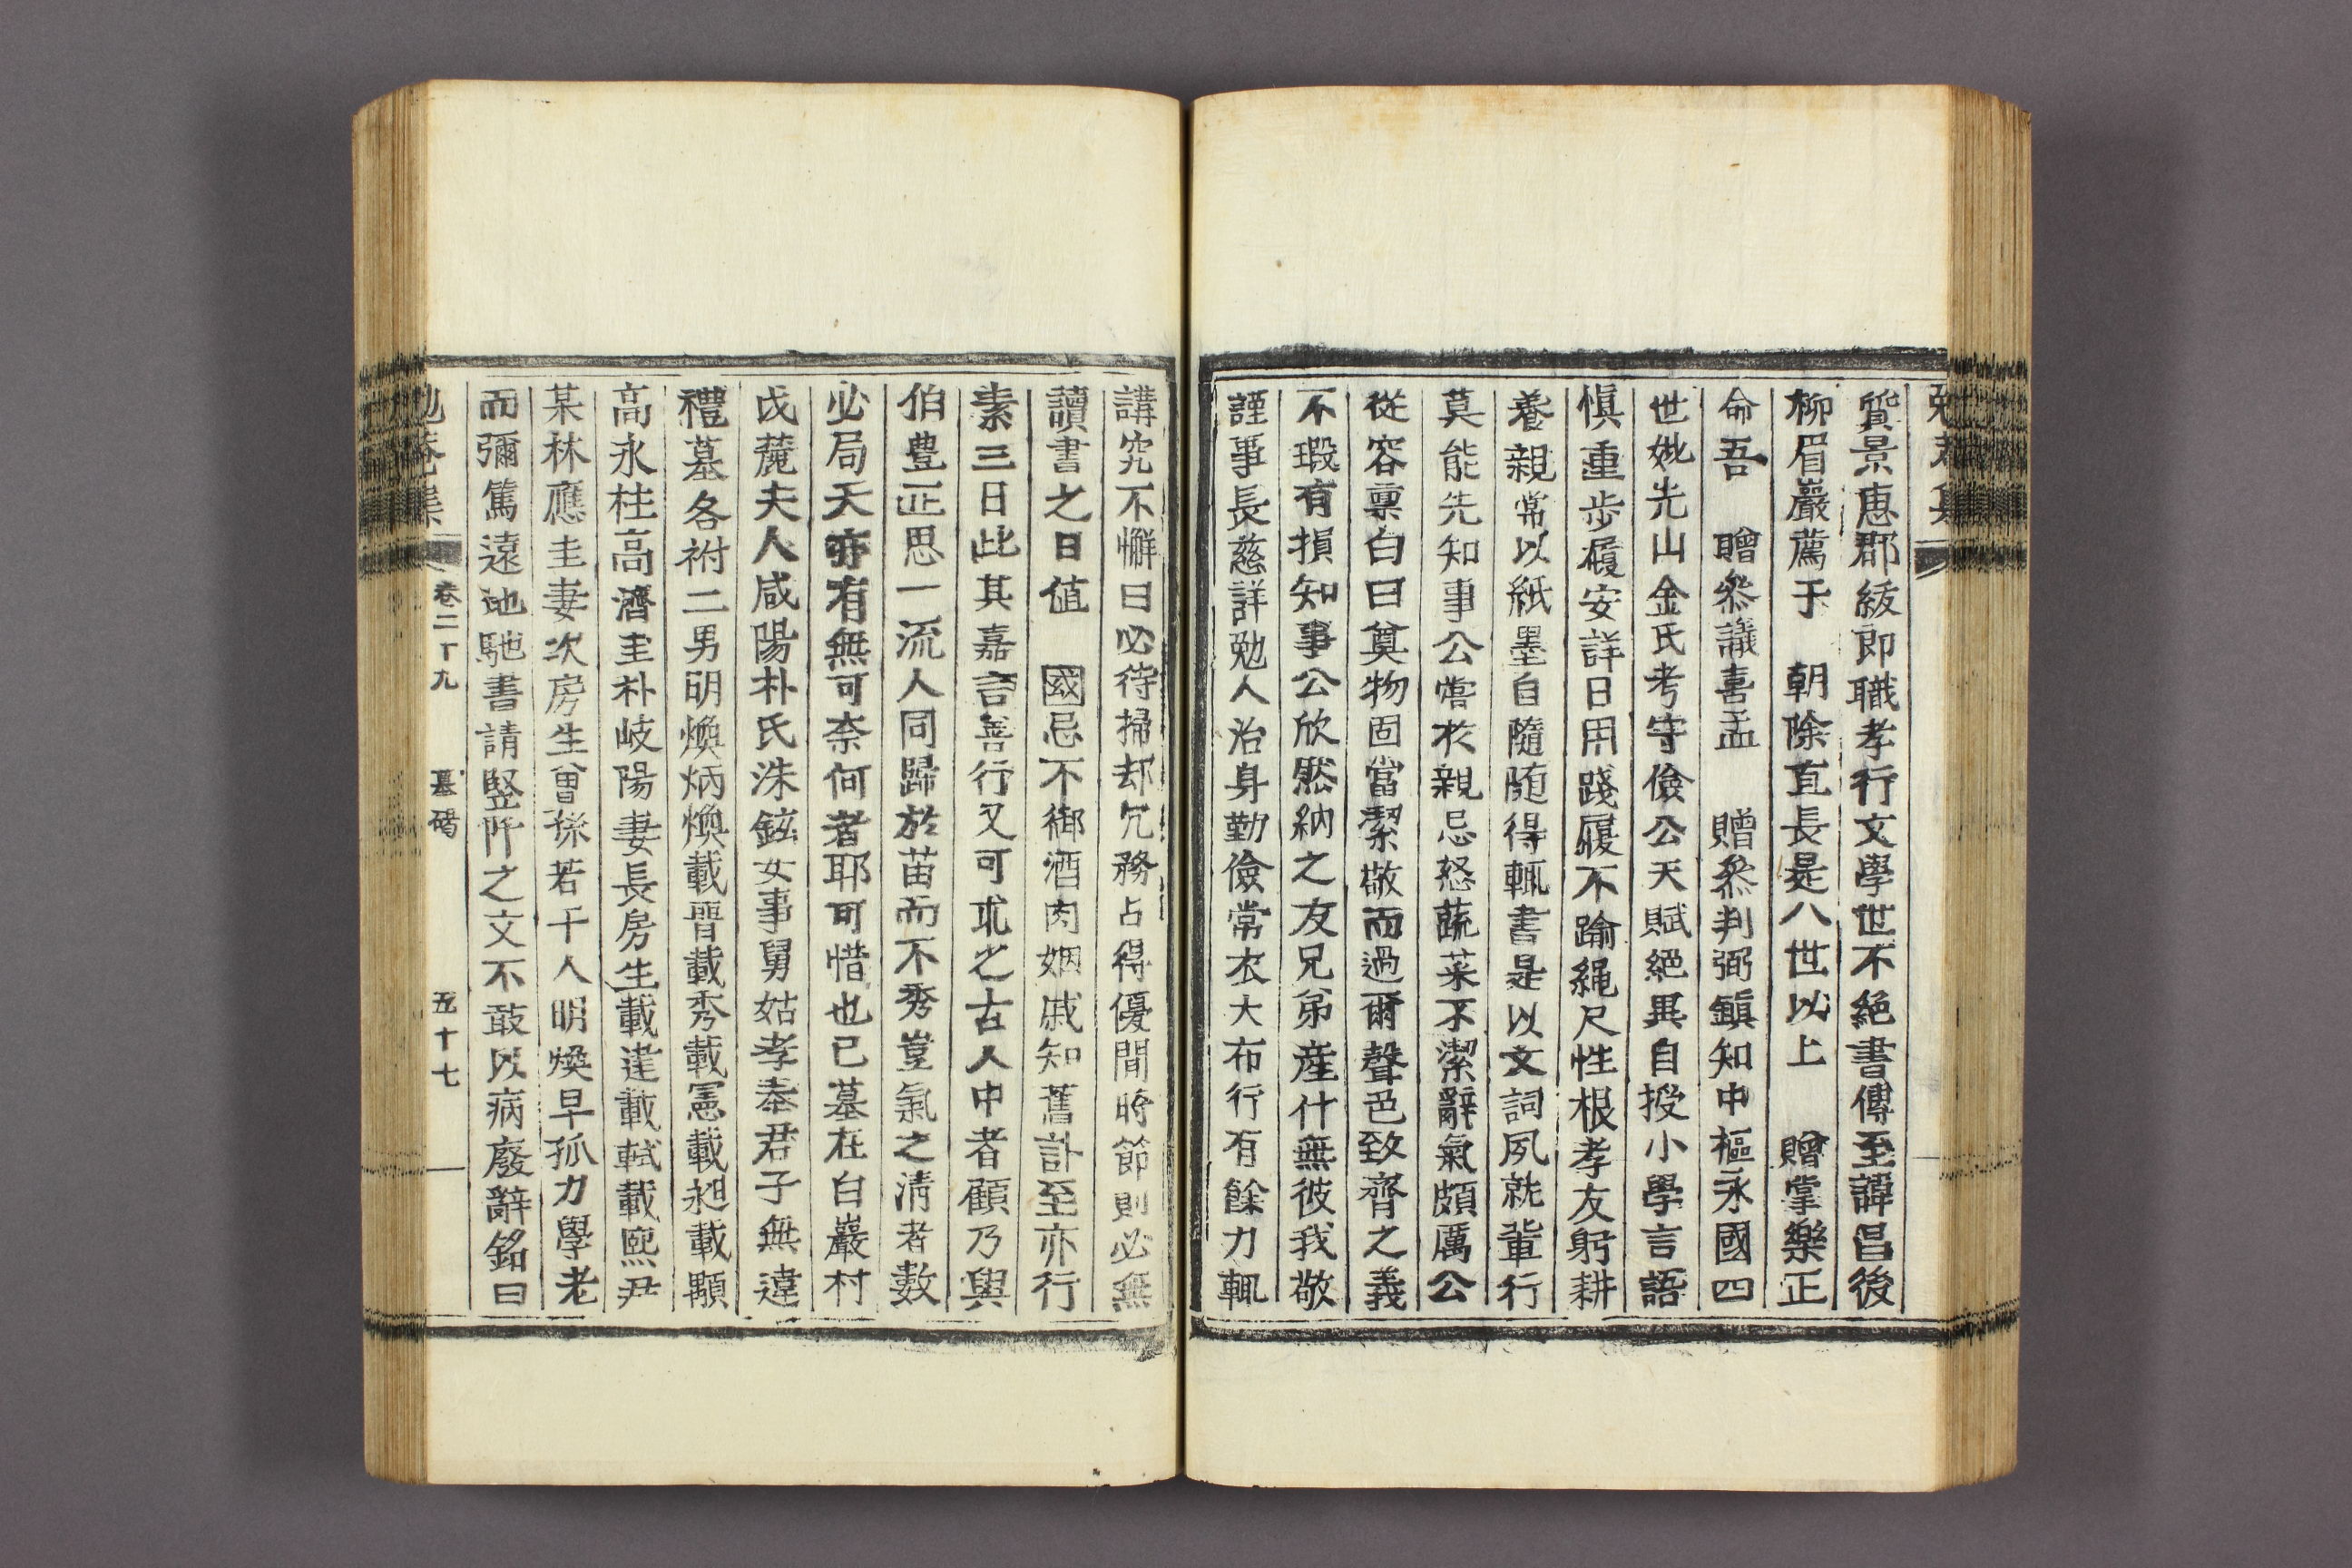 勉菴集
質景惠郡綏即職孝行文學世不絕書傳至諱昌後
柳眉巖薦于　朝除直長是八世以上　贈掌樂正
命吾　贈叅議喜孟　贈叅判弼鎭知中樞永國四
世妣光山金氏考守儉公天賦絕異自授小學言語
愼重步履安詳日用踐履不踰繩尺性根孝友躬耕
養親常以紙墨自隨随得輒書是以文詞夙就輩行
莫能先知事公嘗於親忌怒蔬菜不潔辭氣頗厲公
從容禀白曰奠物固當潔敬而過爾聲色致齊之義
不瑕有損知事公欣然納之友兄弟產什無彼我敬
謹事長慈詳勉人治身勤儉常衣大布行有餘力輒
講究不懈曰必待掃却冗務占得優閒時節則必無
讀書之日値　國忌不御酒肉姻戚知舊訃至亦行
素三日此其嘉言善行又可求之古人中者顧乃與
伯豊正思一流人同歸於苗而不秀豈氣之淸者數
必局天亦有無可柰何者耶可惜也已墓在白巖村
戌麓夫人咸陽朴氏洙鉉女事舅姑孝奉君子無違
禮墓各祔二男明煥炳煥載晋載秀載憲載昶載顯
高永柱高濟圭朴岐陽妻長房生載達載軾載熙尹
某林應圭妻次房生曾孫若干人明煥早孤力學老
而彌篤遠地馳書請竪阡之文不敢以病廢辭銘曰
勉菴集　卷二十九　墓碣　五十七